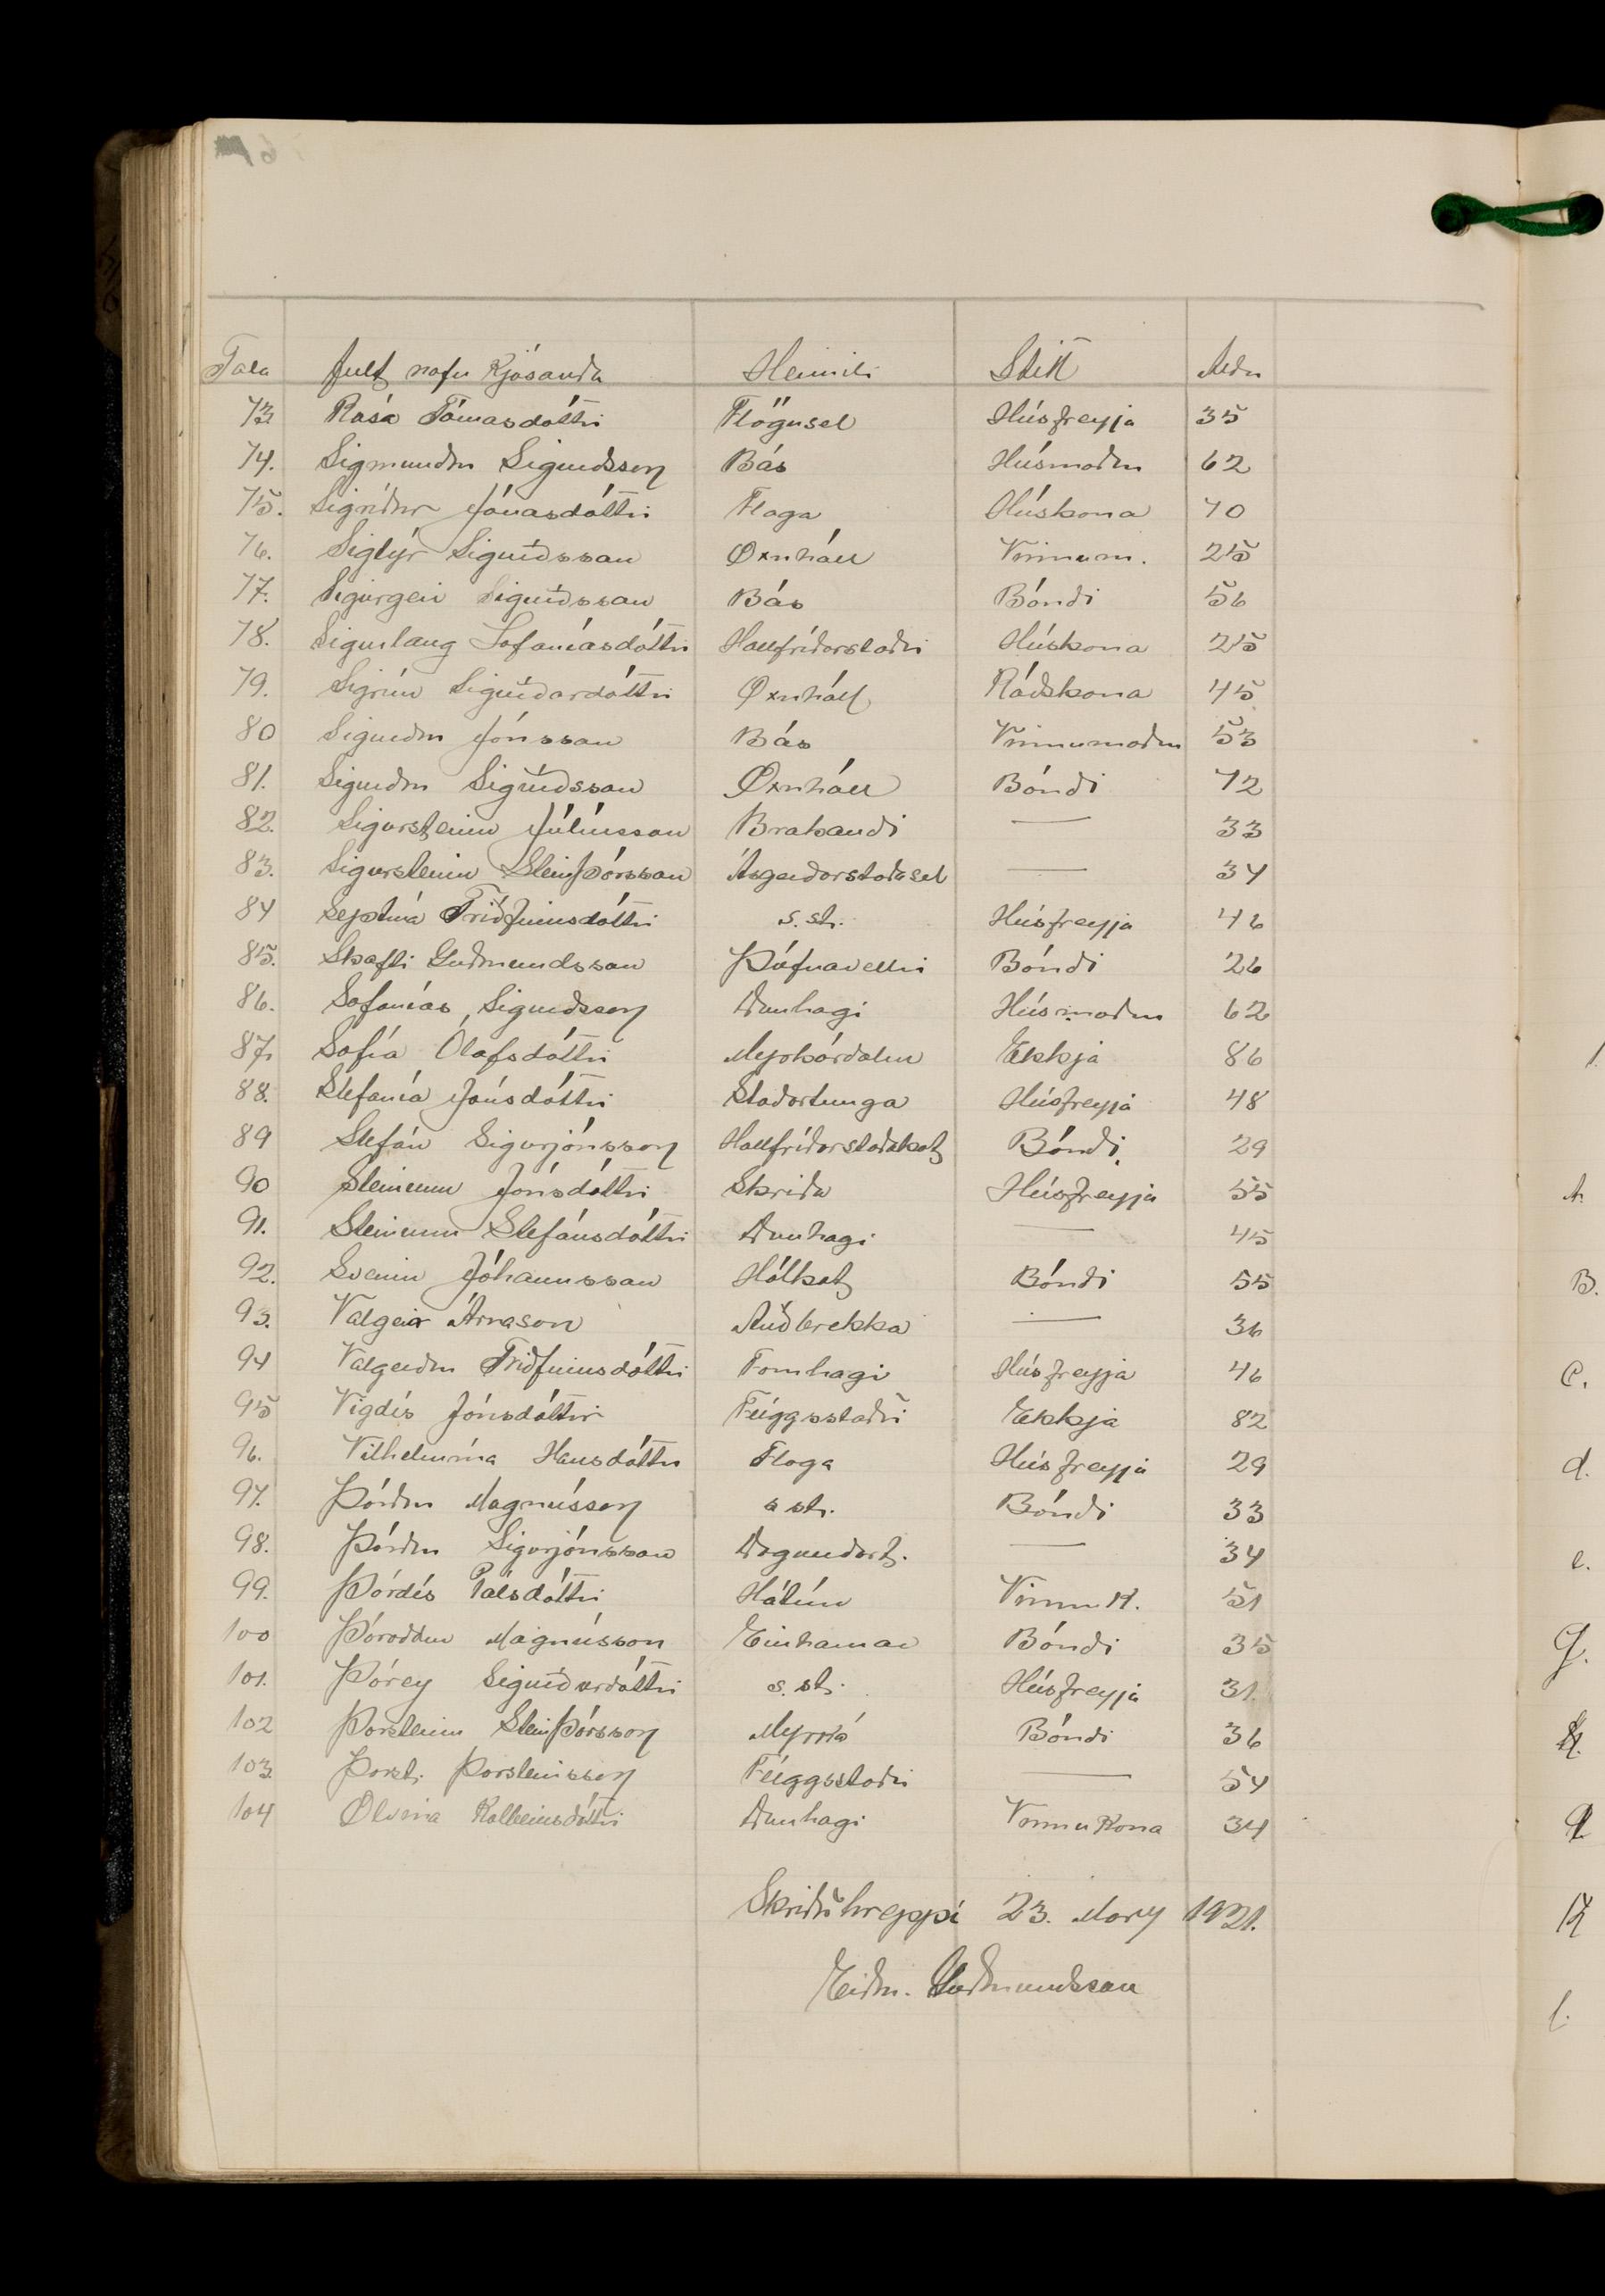 Tala Fult nafn Kjósanda Heimili Stétt Aldur
73 Rósa Tómasdóttir Flögusel Húsfreyja 35
74. Sigmundur Sigurdsson Bás Húsmaður 62
75. Sigríður Jónasdóttir Flaga Húskona 70
76. Sigtýr Sigurðsson Öxnháll Vinnum. 25
77. Sigurgeir Sigurðsson Bás Bóndi 56
78. Sigurlaug Sofaníasdóttir Hallfríðarstaðir Húskona 25
79. Sigrún Sigurðardóttir Öxnháll Ráðskona 45
80 Sigurður Jónsson Bás Vinnumaður 53
81. Sigurður Sigurðsson Öxnháll Bóndi 72
82. Sigursteinn Júlíusson Brakandi — 33
83. Sigursteinn Steinþórsson Ásgerðarstaðasel — 34
84 Septína Friðfinnsdóttir s. st. Húsfreyja 46
85. Skafti Guðmundsson Þúfnavellir Bóndi 26
86. Sofanías Sigurðsson Dunhagi Húsmaður 62
87. Sofía Ólafsdóttir Myrkárdalur Ekkja 86
88. Stefanía Jónsdóttir Staðartunga Húsfreyja 48
89 Stefán Sigurjónsson Hallfríðarstaðakot Bóndi 29
90 Steinunn Jónsdóttir Skriða Húsfreyja 55
91. Steinunn Stefánsdóttir Dunhagi — 45
92. Sveinn Jóhannsson Hólkot Bóndi 55
93. Valgeir Árnason Auðbrekka — 36
94 Valgerður Friðfinnsdóttir Fornhagi Húsfreyja 46
95 Vigdís Jónsdóttir Flöggsstaðir Ekkja 82
96. Vilhelmína Hansdóttir Flaga Húsfreyja 29
97. Þórður Magnússon s st. Bóndi 33
98. Þórður Sigurjónsson — 34
99. Þórdís Pálsdóttir Hátún Vinnu K. 51
100 Þóroddur Magnússon Einhamar Bóndi 35
101. Þórey Sigurðardóttir s. st. Húsfreyja 31.
102 Þorsteinn Steinþórsson Myrká Bóndi 36
103 Þorst. Þorsteinsson Flöggsstaðir — 54
104 Ölvína Kolbeinsdóttir Dunhagi Vinnu Kona 34
Skriðuhreppi 23. Marz 1921.
Eiður Guðmundsson
A.
B.
C.
d.
e.
l.